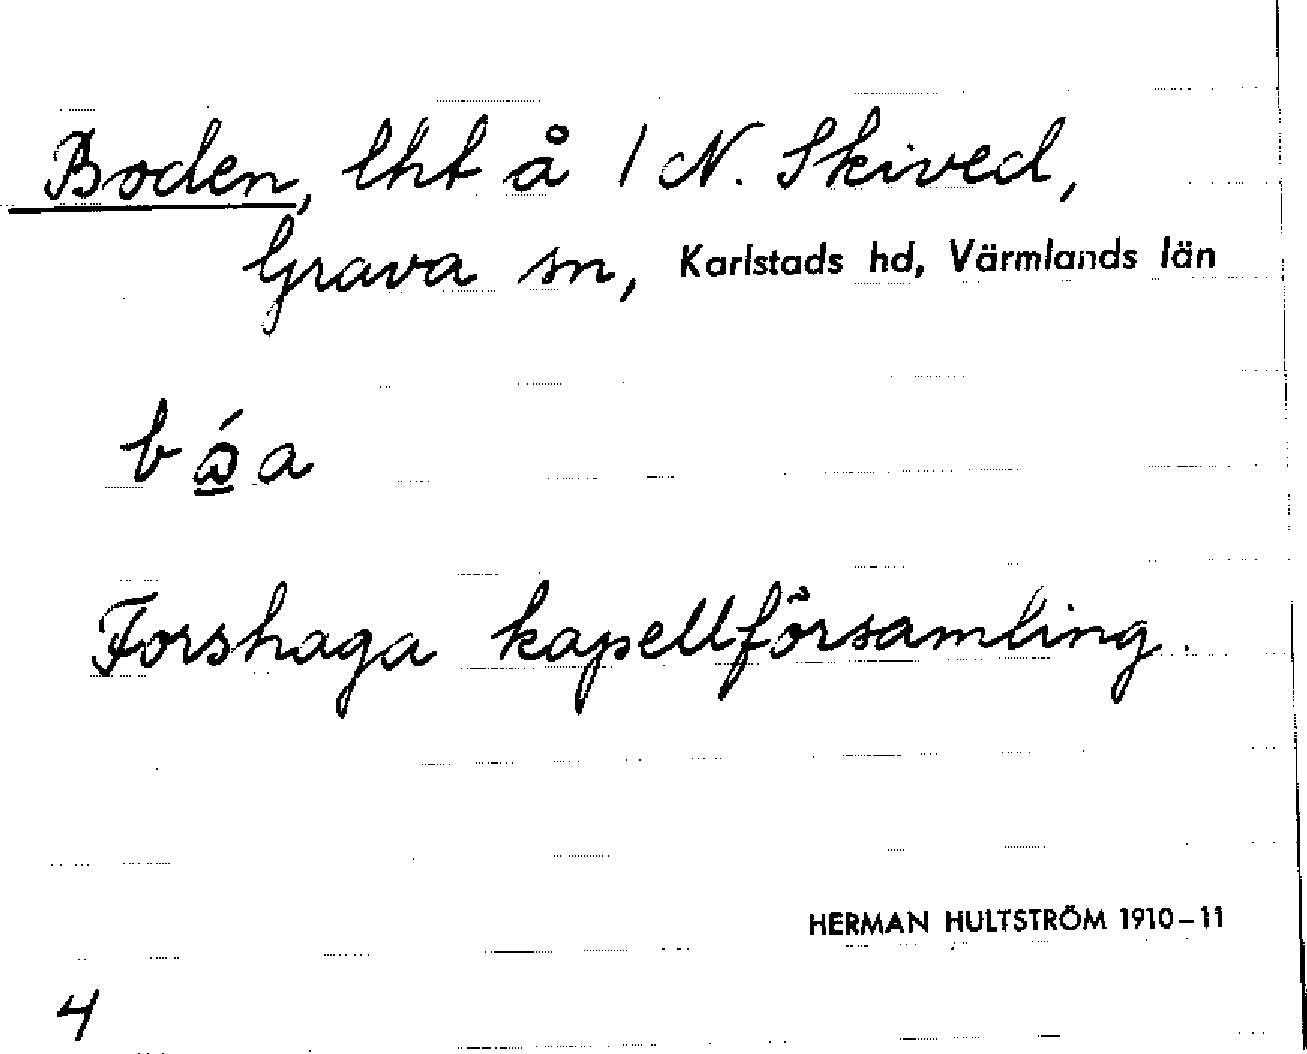 Boden, lht å 1 N. Skived,
Grava sn, Karlstads hd, Värmlands län
Forshaga kapellförsamling.
HERMAN HULTSTRÖM 1910-11
4